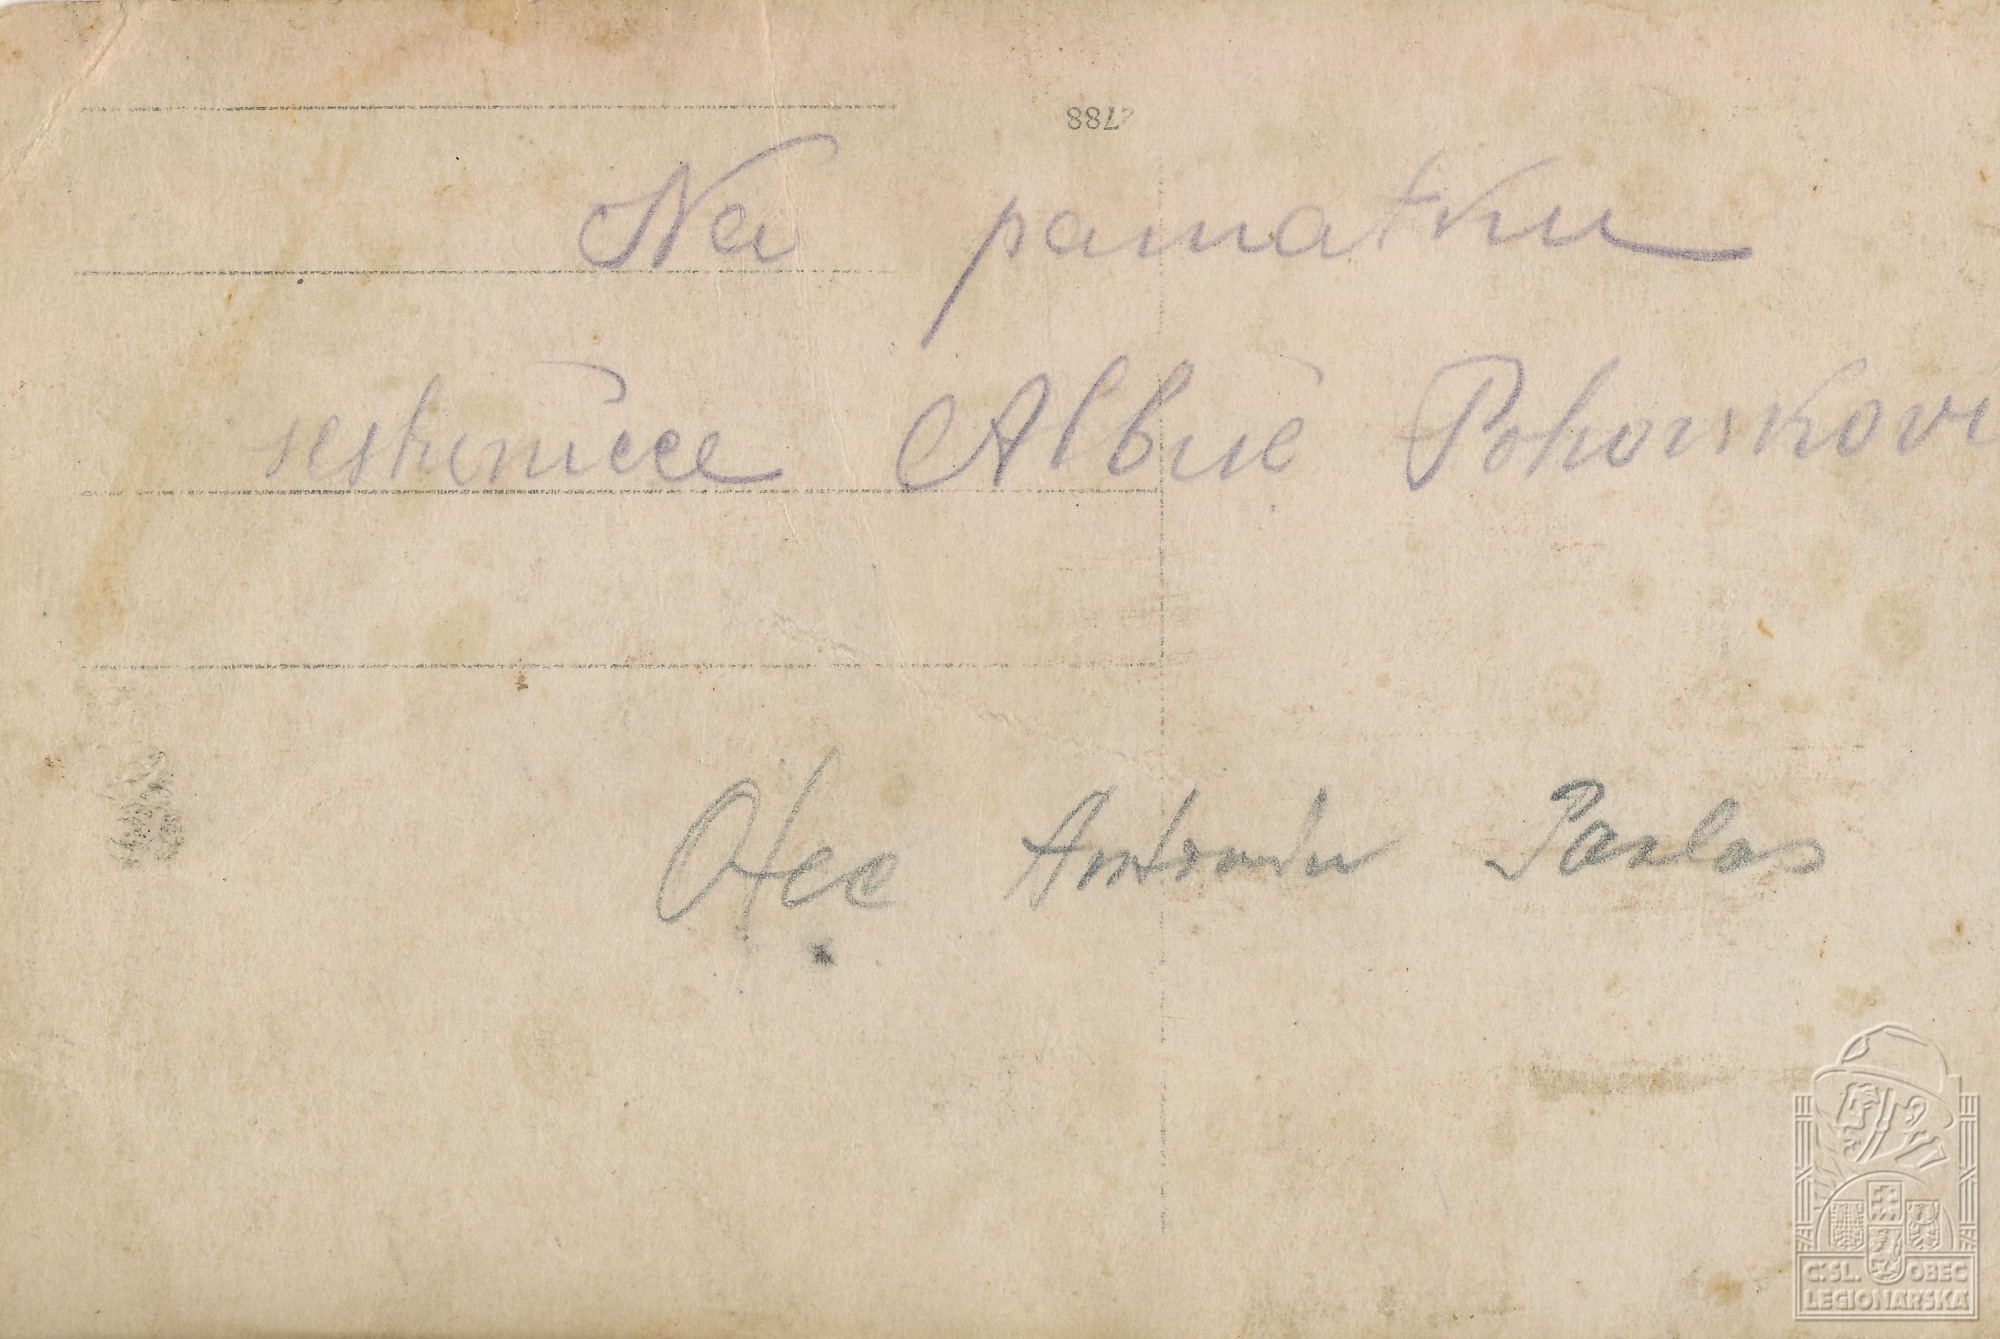 8817
Na pamatku
sestřenicce Albině Pohorskovi
Otec Antonín Pavlas
Č.SL. OBEC
LEGIONÁŘSKÁ